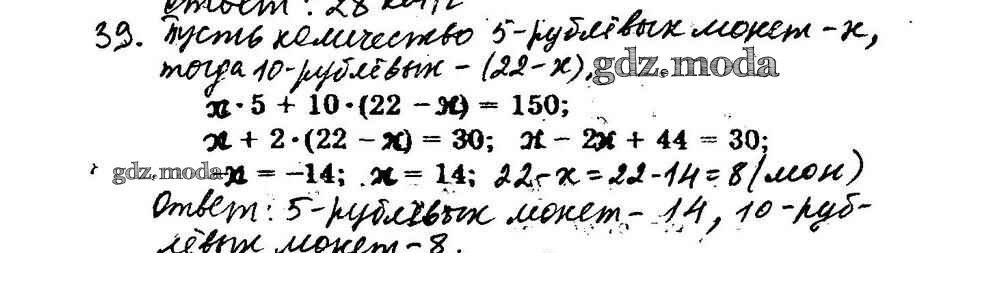 Ответ: 28
39. Пусть количество 5-рублёвых монет - x,
тогда 10-рублёвых - (22 - x). gdz.moda
x·5 + 10·(22 - x) = 150;
x + 2·(22 - x) = 30; x - 2x + 44 = 30;
gdz.moda -x = -14; x = 14; 22 - x = 22 - 14 = 8 (мон)
Ответ: 5-рублёвых монет - 14, 10-руб-
лёвых монет - 8.